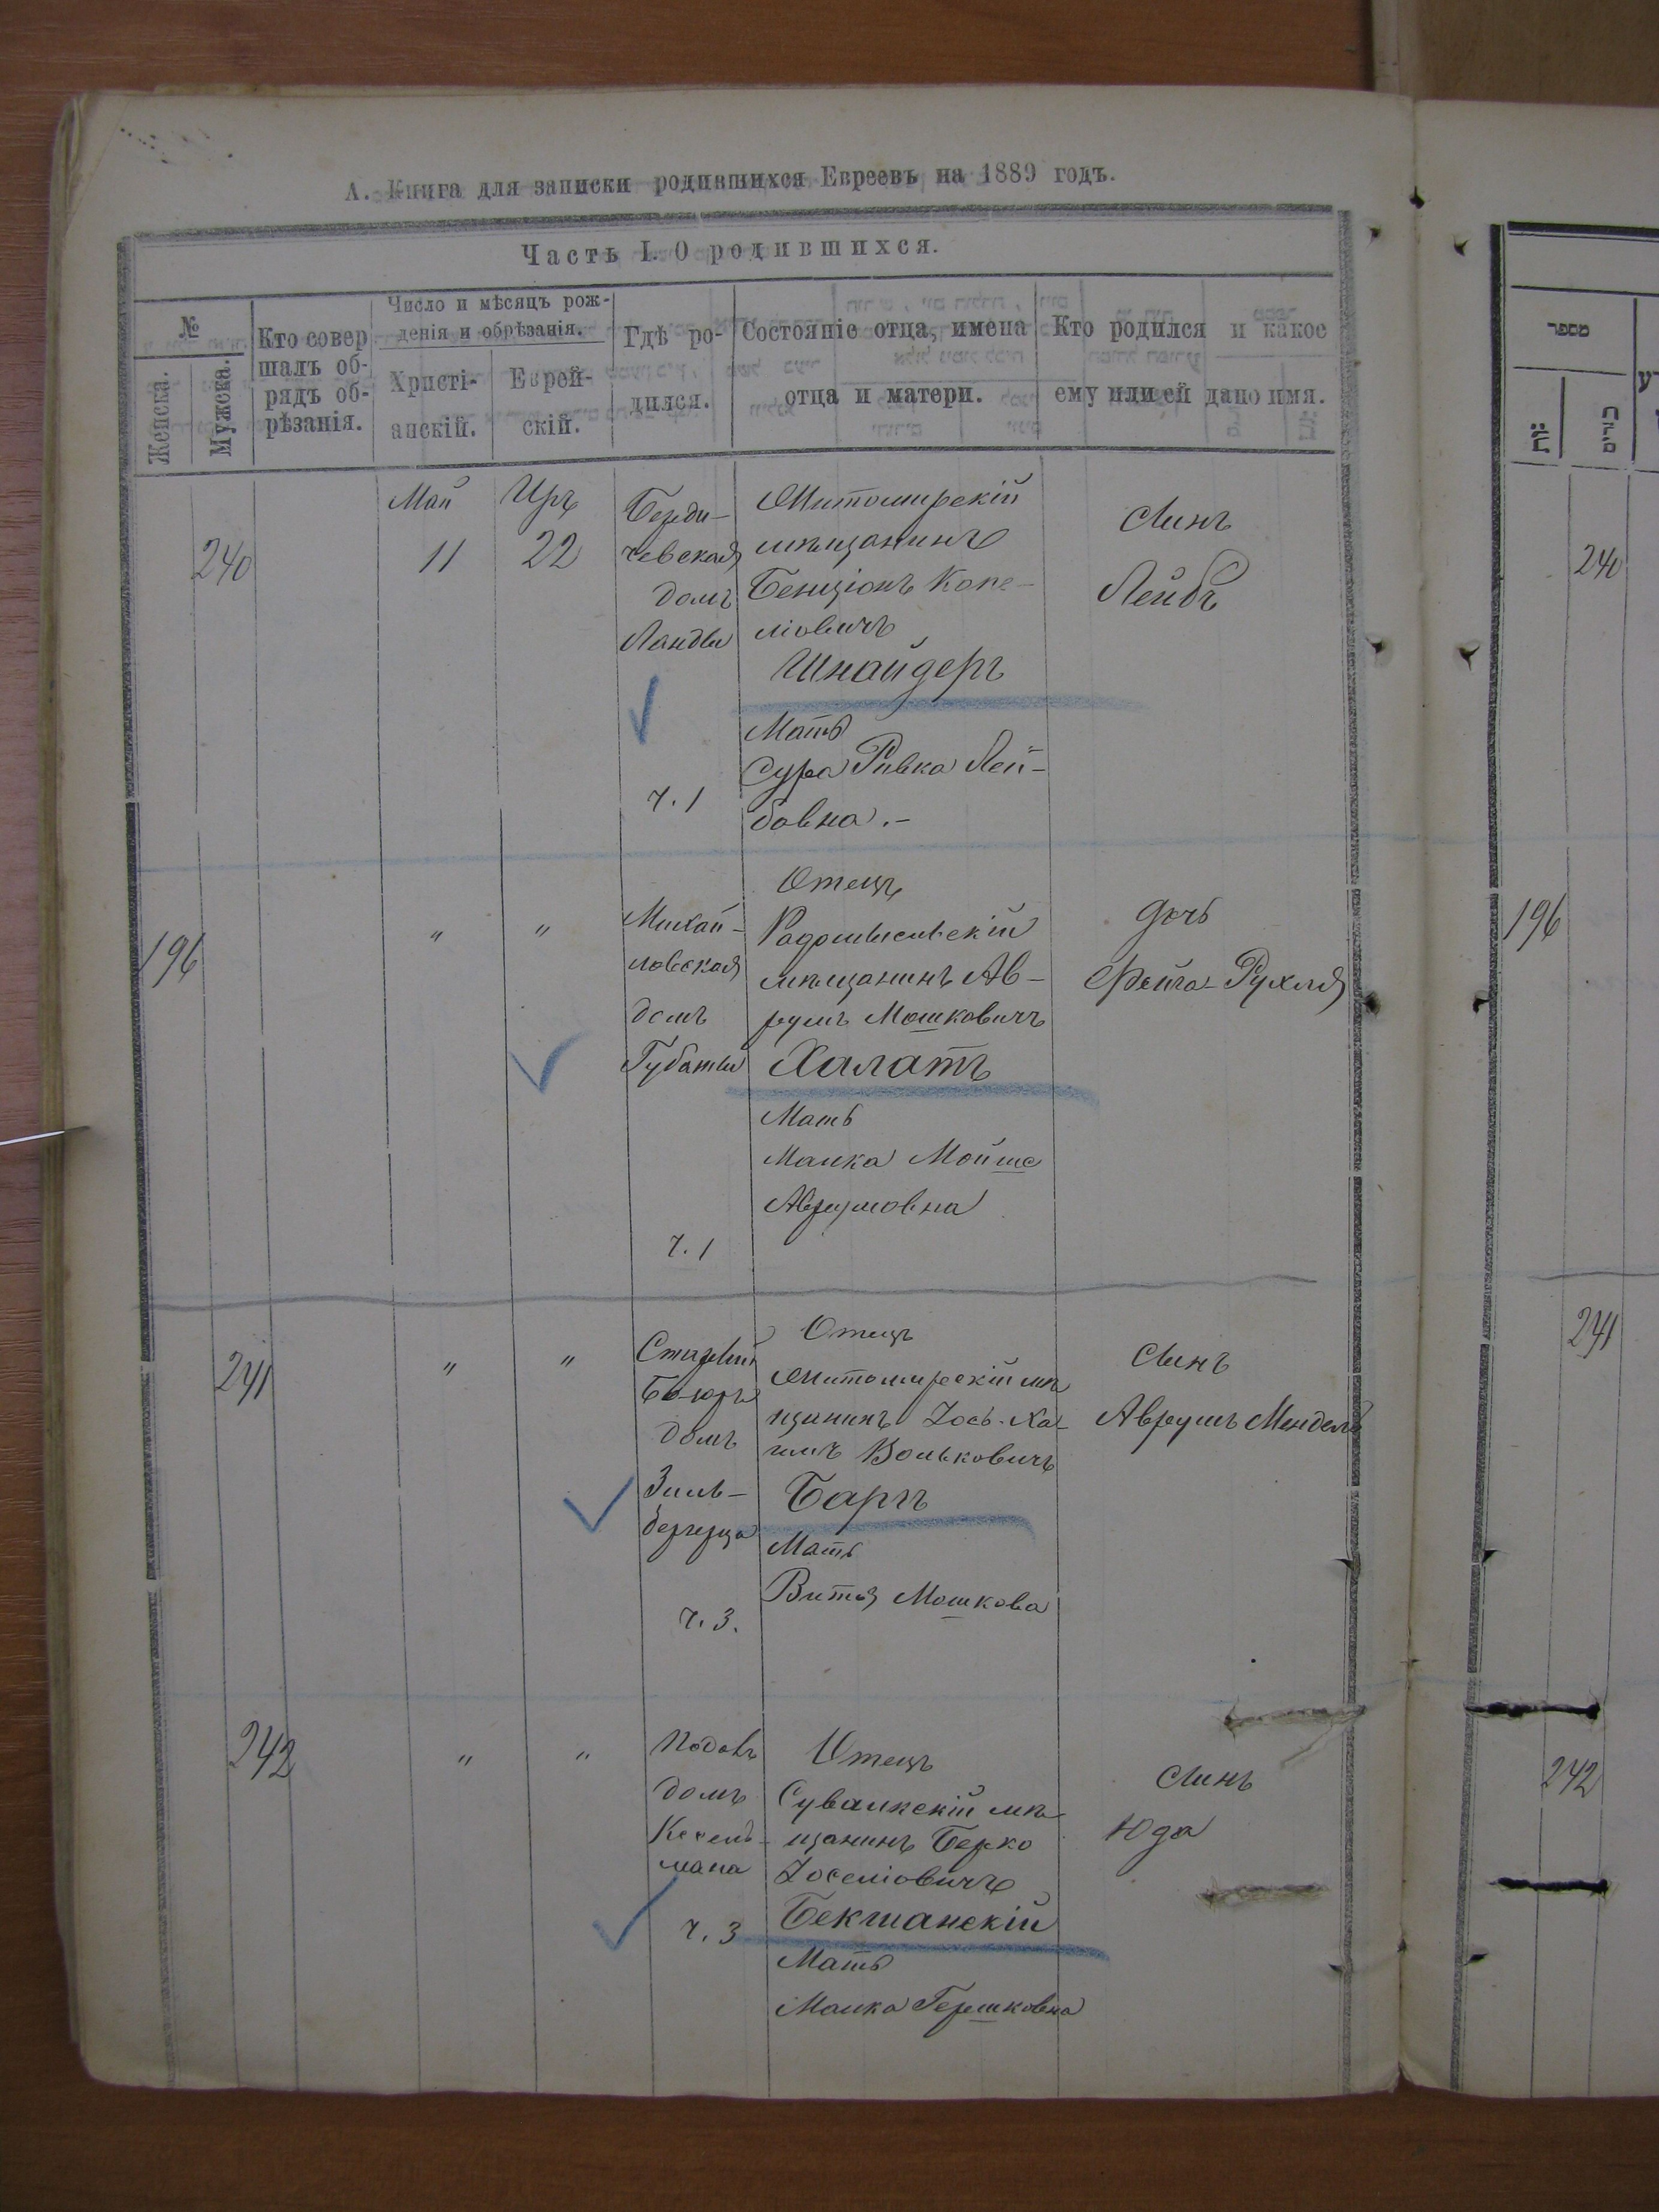 А. Книга для записки родившихся Евреевъ на 1889 годъ.
Часть I. О родившихся.
№
Женска.
Мужска.
Кто совер
шалъ об-
рядъ об-
рѣзанія.
Число и мѣсяцъ рож-
денія и обрѣзанія.
Христі-
анскій.
Еврей-
скій.
Гдѣ ро-
дился.
Состояніе отца, имена
отца и матери.
Кто родился и какое
ему или ей дано имя.
240
Май
11
Иръ
22
Берди-
чевская
домъ
Ланды
ч. 1
Житомирскій
мѣщанинъ
Бенціонъ Копе-
ліовичъ
Шнайдеръ
Мать
Сура Ривка Лей-
бовна.-
Сынъ
Лейбъ
196
"
"
Михай-
ловская
домъ
Губаты
ч. 1
Отецъ
Радомысльскій
мѣщанинъ Ав-
румъ Мошковичъ
Халатъ
Мать
Малка Мойше
Аврумовна
Дочь
Фейга-Рухля
241
"
"
Старый
домъ
Зиль-
ч. 3.
Отецъ
Житомирскій мѣ
щанинъ Іось-Ха-
имъ Вольковичъ
Баръ
Мать
Витя Мошкова
Сынъ
Аврумъ Мендель
242
"
"
домъ
Кесель-
мана
ч. 3
Отецъ
Сувалкскій мѣ-
щанинъ Берко
Іоселіовичъ
Бекманскій
Мать
Малка Гершковна
Сынъ
Юда
מספר
זכרים
240
196
241
242